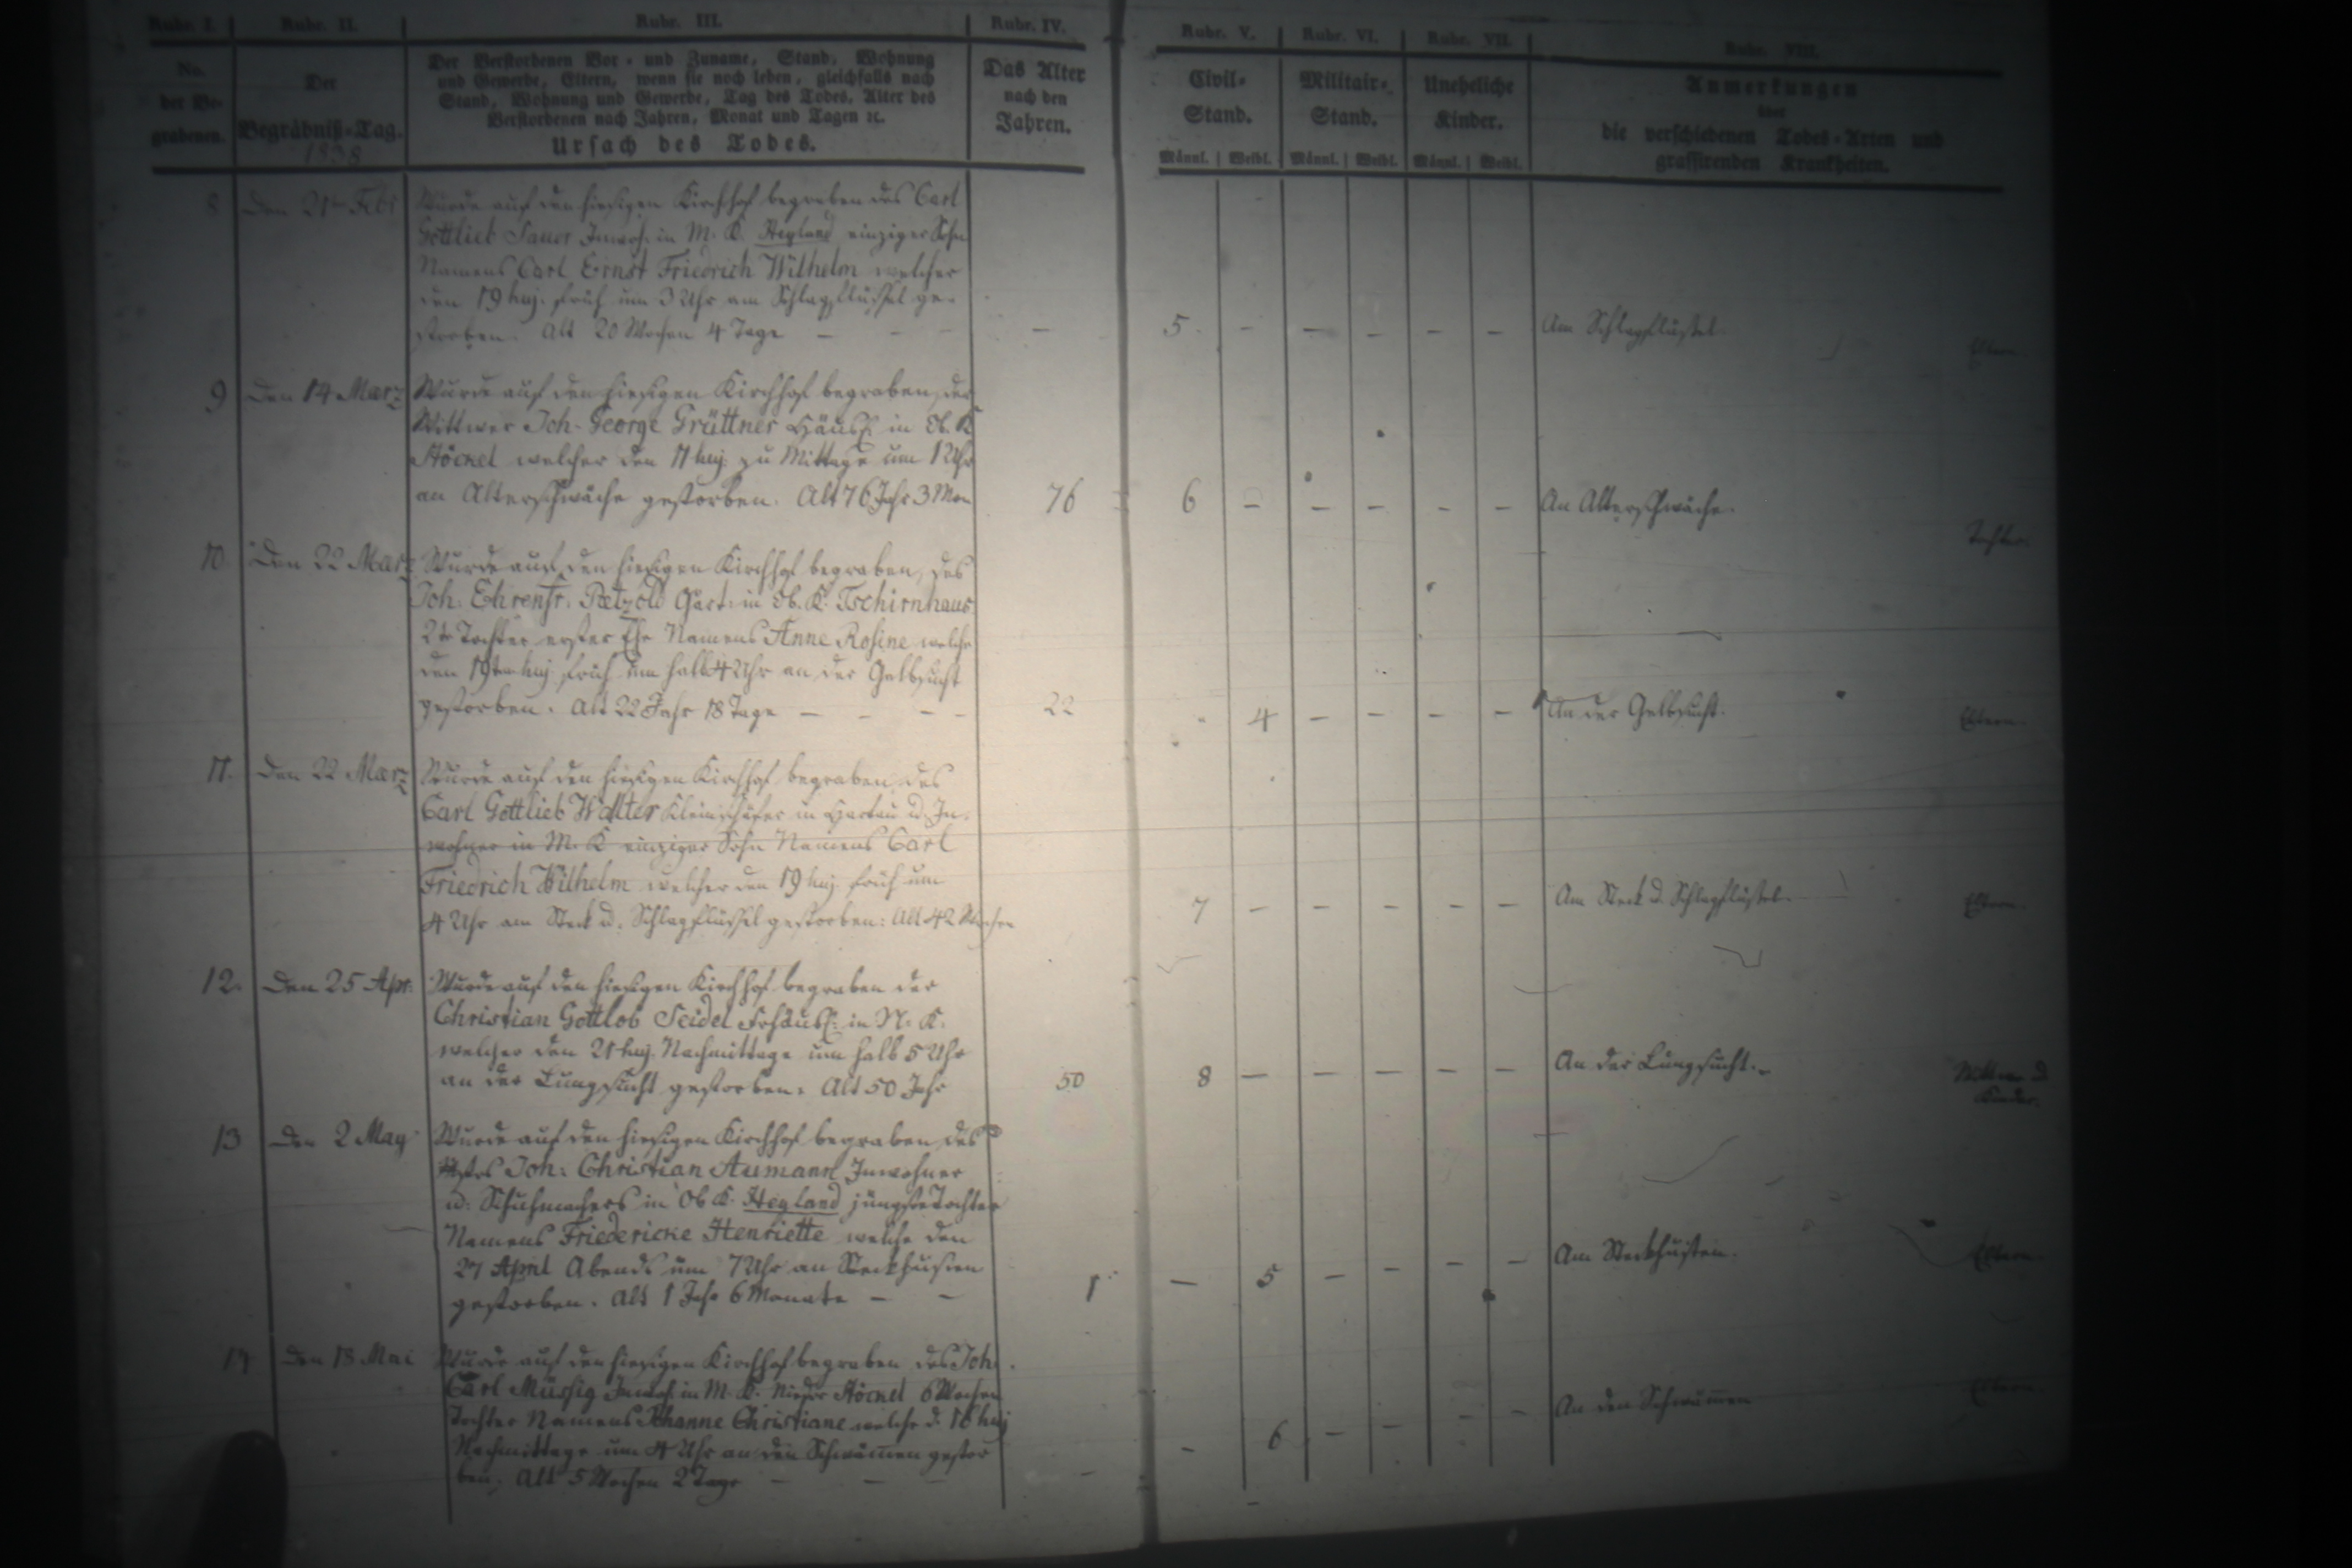 Rubr. I. Rubr. II. Rubr. III. Rubr. IV. Rubr. V. Rubr. VI. Rubr. VII. Rubr. VIII.
No. der Be- grabenen.
Der Begräbniß-Tag.
1838
Der Verstorbenen Vor- und Zuname, Stand, Wohnung
und Gewerbe, Eltern, wenn sie noch leben, gleichfalls nach
Stand, Wohnung und Gewerbe, Tag des Todes, Alter des
Verstorbenen nach Jahren, Monat und Tagen ꝛc.
Ursach des Todes.
Das Alter
nach den
Jahren.
Civil-
Stand.
Militair-
Stand.
Uneheliche
Kinder.
Männl. Weibl. Männl. Weibl. Männl. Weibl.
Anmerkungen
über
die verschiedenen Todes-Arten und
grassirenden Krankheiten.
8 Den 21ten Febr Wurde auf den hiesigen Kirchhof begraben des Carl
Gottlieb Sauer Inwoh. in M. K. Hegland einziger Sohn
Namens Carl Ernst Friedrich Wilhelm welcher
den 19 huj. früh um 3 Uhr am Schlagflüssel ge-
storben. Alt 20 Wochen 4 Tage — — — — 5. — — — — — Am Schlagflüssel.
Eltern.
9 Den 14 Marz Wurde auf den hiesigen Kirchhof begraben, der
Wittwer Joh. George Grüttner Häusl. in Ob. K
Stöckel welcher den 11 huj. zu Mittage um 1 Uhr
an Altersschwäche gestorben. Alt 76 Jahr 3 Mon 76 6 — — — — — An Altersschwäche.
Tochter.
10 Den 22 Marz Wurde auf den hiesigen Kirchhof begraben, des
Joh. Ehrenfr. Pætzold Gärt. in Ob. K. Tschirnhaus
2te Tochter erster Ehe Namens Anne Rosine welche
den 19ten huj. früh um halb 4 Uhr an der Gelbsucht
gestorben. Alt 22 Jahr 18 Tage — — — 22 4 — — — — An der Gelbsucht. Eltern.
11. Den 22 Marz Wurde auf den hiesigen Kirchhof begraben des
Carl Gottlieb Walter Kleinschäfer in Hartau u. In-
wohner in M. K einziger Sohn Namens Carl
Friedrich Wilhelm welcher den 19 huj. früh um
4 Uhr am Steck u. Schlagflüssel gestorben: Alt 42 Wochen 7 — — — — — Am Steck u. Schlagflüssel. Eltern.
12. Den 25 Apr. Wurde auf den hiesigen Kirchhof begraben der
Christian Gottlob Seidel Frhäusl. in N. K.
welcher den 21 huj. Nachmittage um halb 5 Uhr
an der Lungsucht gestorben. Alt 50 Jahr 50 8 — — — — — An der Lungsucht. Wittwe u.
Kinder.
13 Den 2 May Wurde auf den hiesigen Kirchhof begraben, des
Joh. Christian Aumann Inwohner
u. Schuhmachers in Ob K. Hegland jüngste Tochter
Namens Friedericke Henriette welche den
27 April Abends um 7 Uhr an Steckhusten
gestorben. Alt 1 Jahr 6 Monate — — 1 — 5 — — — — Am Steckhusten. Eltern.
14 Den 18 Mai Wurde auf den hiesigen Kirchhof begraben des Joh.
Carl Müssig Inwoh. in M. K. Nieder Stöckel 6 Wochen
Tochter Namens Johanne Christiane welche d. 16 huj
Nachmittage um 4 Uhr an den Schwämen gestor
ben. Alt 5 Wochen 2 Tage — — — — — 6 — — — — An den Schwämen Eltern.